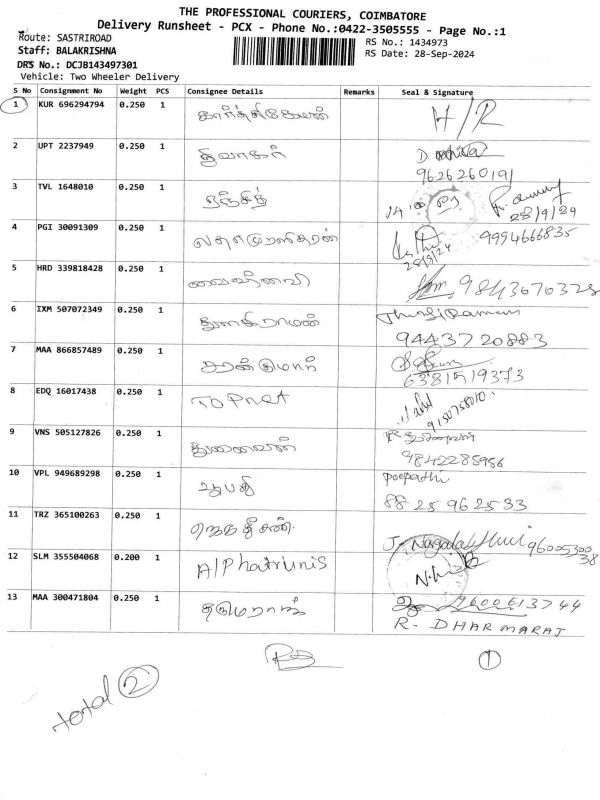 THE PROFESSIONAL COURIERS, COIMBATORE
Delivery Runsheet - PCX - Phone No.:0422-3505555 - Page No.:1
Route: SASTRIROAD
RS No.: 1434973
Staff: BALAKRISHNA
RS Date: 28-Sep-2024
DRS No.: DCJB143497301
Vehicle: Two Wheeler Delivery
S No Consignment No Weight PCS Consignee Details Remarks Seal & Signature
1 KUR 696294794 0.250 1 கார்த்திகேயன் H/R
2 UPT 2237949 0.250 1 திவாகர் D.
9626260191
3 TVL 1648010 0.250 1 ரஞ்சித்
28/9/24
4 PGI 30091309 0.250 1 9994666835
28/9/24
5 HRD 339818428 0.250 1 வைஷ்ணவி 9843670328
6 IXM 507072349 0.250 1 துளசிராமன் ThulsiRaman
9443720883
7 MAA 866857489 0.250 1
6381519373
8 EDQ 16017438 0.250 1 TOPnet
9150758010
9 VNS 505127826 0.250 1 துணைவன்
9842285956
10 VPL 949689298 0.250 1 பூபதி poopathi
88 25 962533
11 TRZ 365100263 0.250 1 ஜெகதீசன் J.
9600530038
12 SLM 355504068 0.200 1 Alphatrunis
13 MAA 300471804 0.250 1 தருமராஜ் 9600613744
R. DHARMARAJ
1
total 2